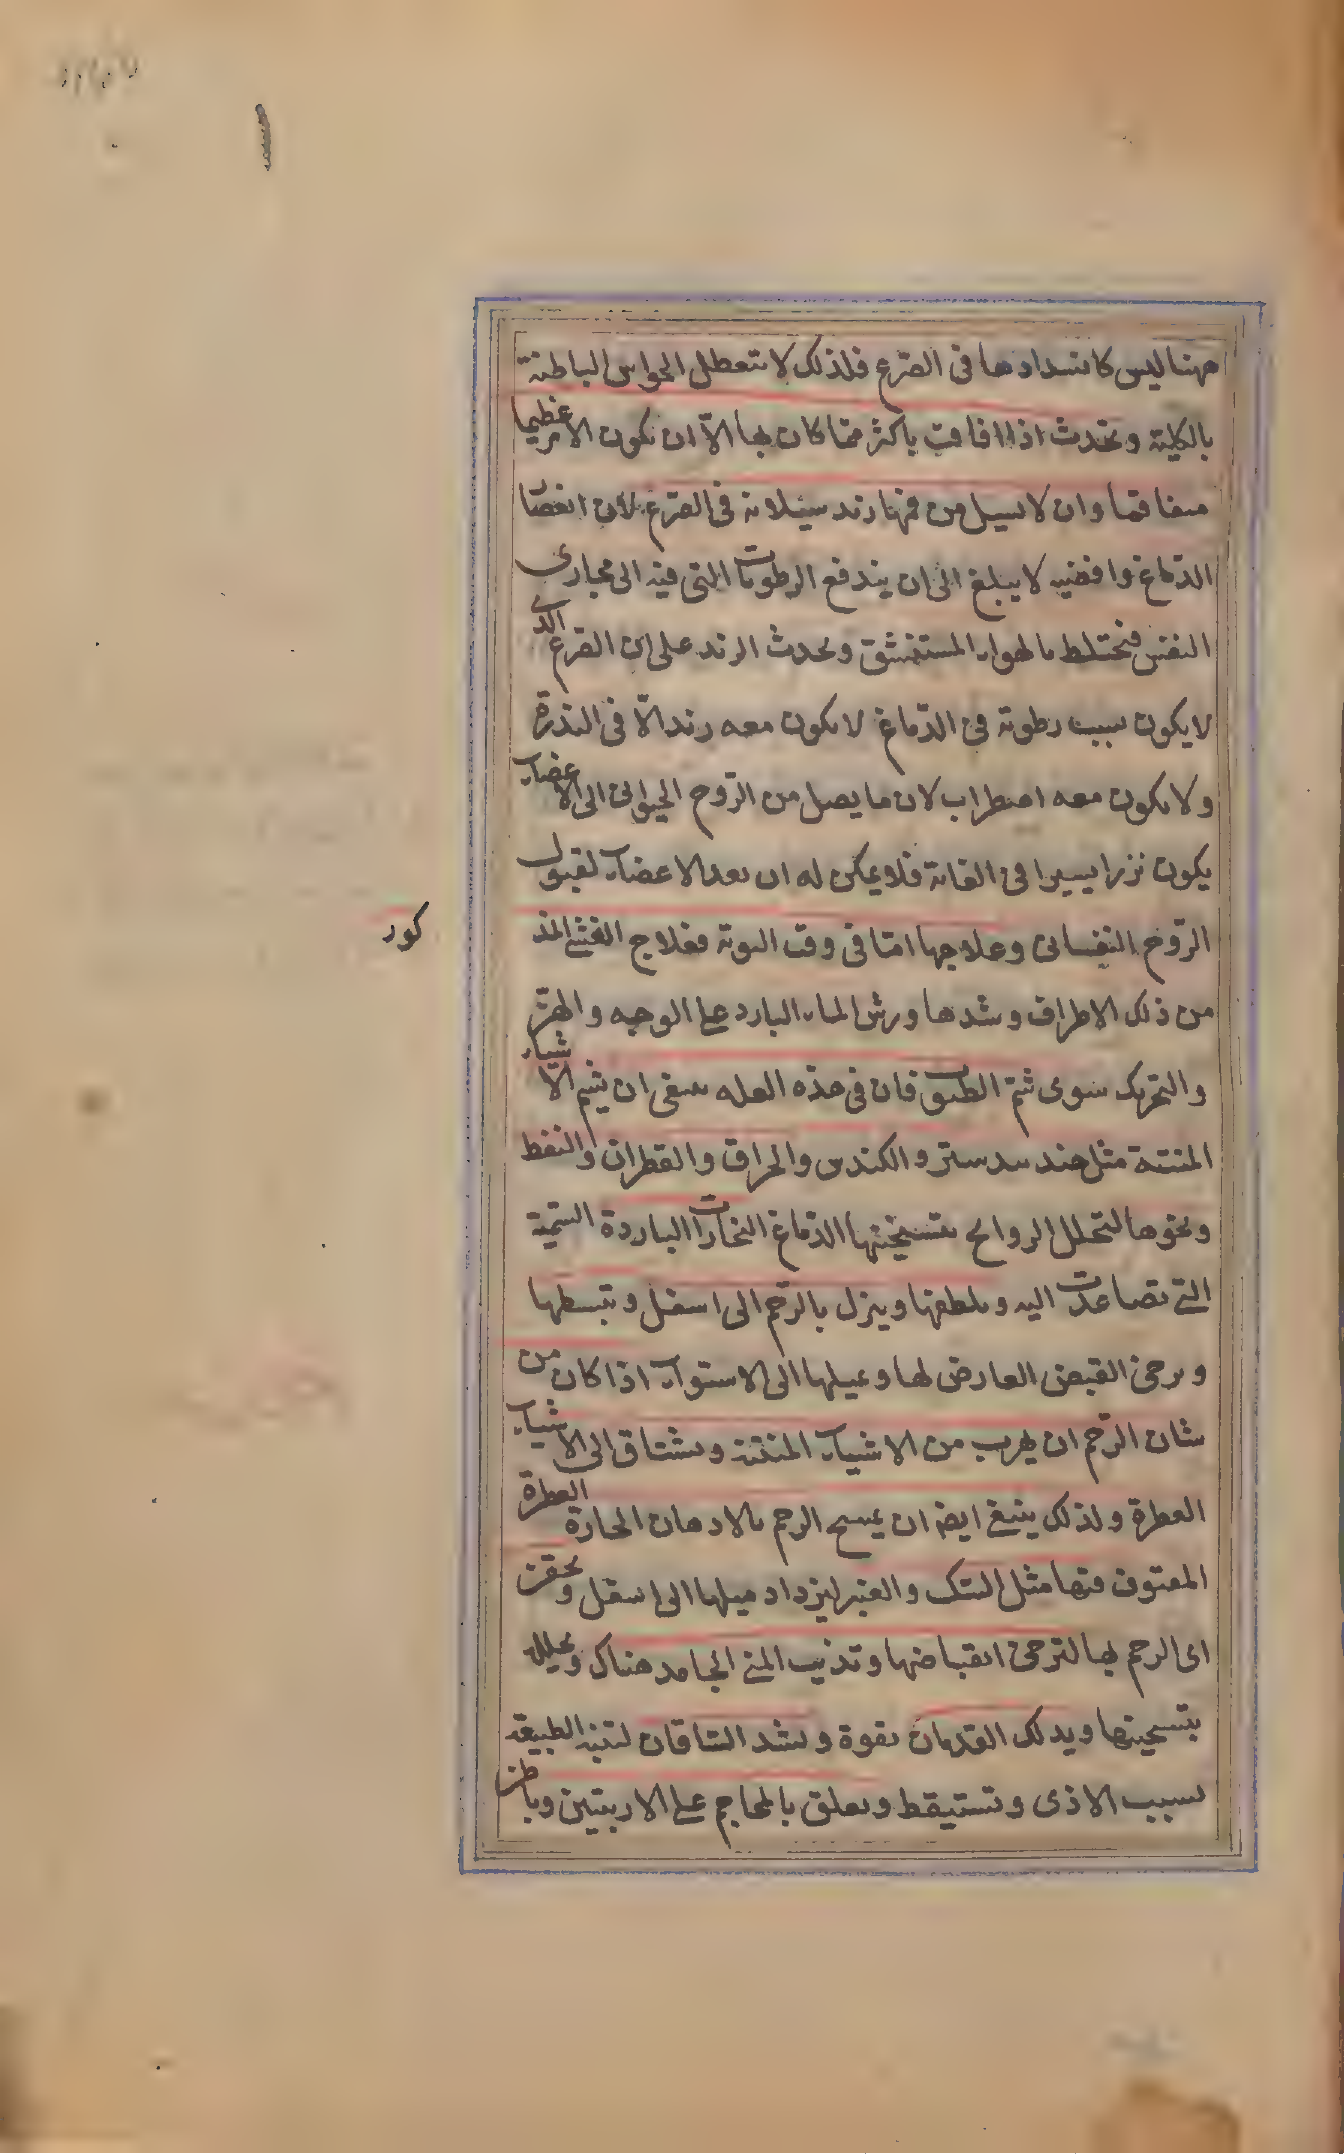 ههنا ليس كانسدادها فى الصرع فلذلك لا تتعطل الحواس الباطنة
بالكلية وتحدث اذا افاقت باكثر مما كان بها الّا ان يكون الامر عظيما
متفاقما وان لا يسيل من فمها زبد سيلانه فى الصرع لان انعصا
الدماغ وافضيه لا يبلغ الى ان يندفع الرطوبات التى فيه الى مجارى
النفس فتختلط بالهواء المستنشق ويحدث الزبد على ان الصرع الذى
لا يكون بسبب رطوبة فى الدماغ لا يكون معه زبد الّا فى الندرة
ولا يكون معه اضطراب لان ما يصل من الروح الحيوانى الى الاعضاء
يكون نزرا يسيرا فى الغاية فلا يمكن له ان يعد الاعضاء لقبول
الروح النفسانى وعلاجها امّا فى وقت النوبة فعلاج الغشى المذ
كور
من ذلك الاطراف وشدها ورش الماء البارد على الوجه والهزّ
والتحريك سوى شمّ الطيب فان فى هذه العله ينبغى ان يشم الاشياء
المنتنة مثل جندبيدستر والكندس والحراق والقطران والنفط
ونحوها لتحلل الروائح بتسخينها الدماغ البخارات الباردة السّمية
التى تصاعدت اليه ويلطفها وينزل بالرّحم الى اسفل وتبسطها
ويرخى القبض العارض لها ويميلها الى الاستواء اذا كان من
شان الرّحم ان يهرب من الاشياء المنتنة ويشتاق الى الاشياء
العطرة ولذلك ينبغى ايضا ان يمسح الرحم بالادهان الحارة العطرة
المفتوق فيها مثل السّك والعنبر ليزداد ميلها الى اسفل ويحقن
اى الرحم بها لترخى انقباضها وتذيب المنى الجامد هناك ويحلله
بتسخينها ويدلك القدمان بقوة ويشد الساقان لتنبه الطبيعة
بسبب الاذى وتستيقظ ويعلق بالمحاجم على الاربتين وباطن